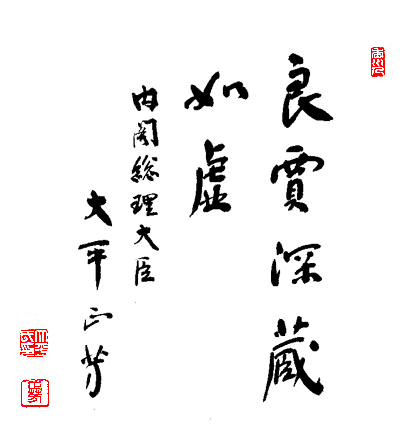 良賈深蔵
如虚
内閣総理大臣
大平正芳